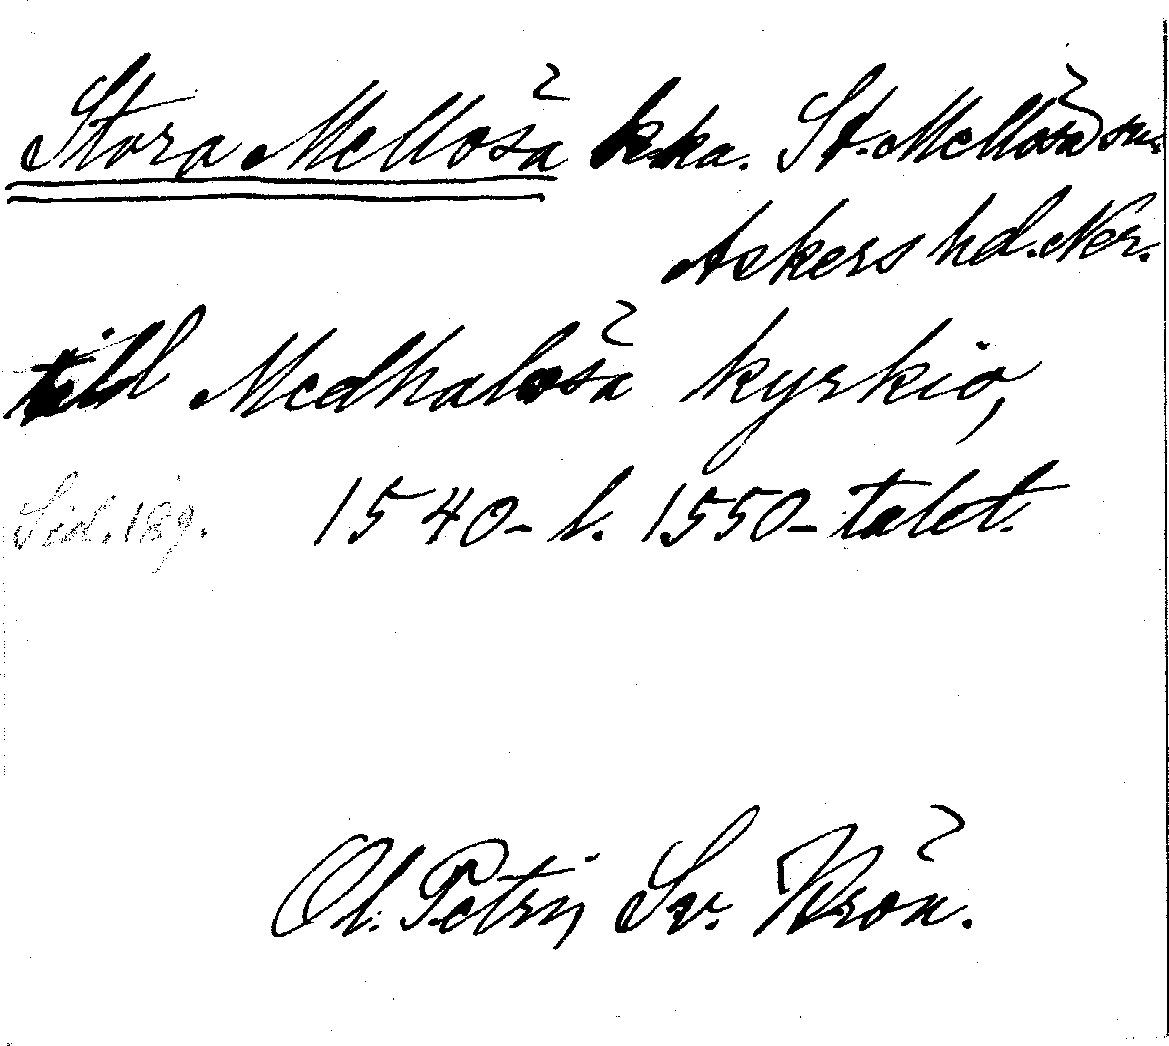 Stora Mellösa kka. St. Mellösa sn.
Askers hd. Ner.
till Medhalösa kyrkio,
Sid. 189. 1540- l. 1550-talet.
Ol. Petri, Sv. Krön.